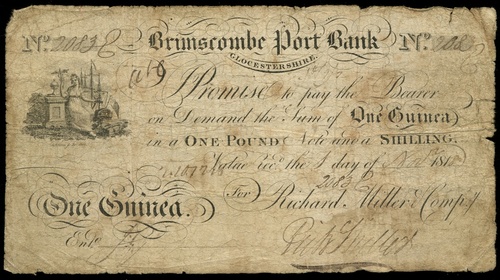 No. 2083 Brimscombe Port Bank No. 208
GLOCESTERSHIRE.
I Promise to pay the Bearer
on Demand the Sum of One Guinea
in a ONE POUND Note and a SHILLING.
Value recd. the 1 day of 181
2083
One Guinea. For Richard Miller & Compy.
Entd.